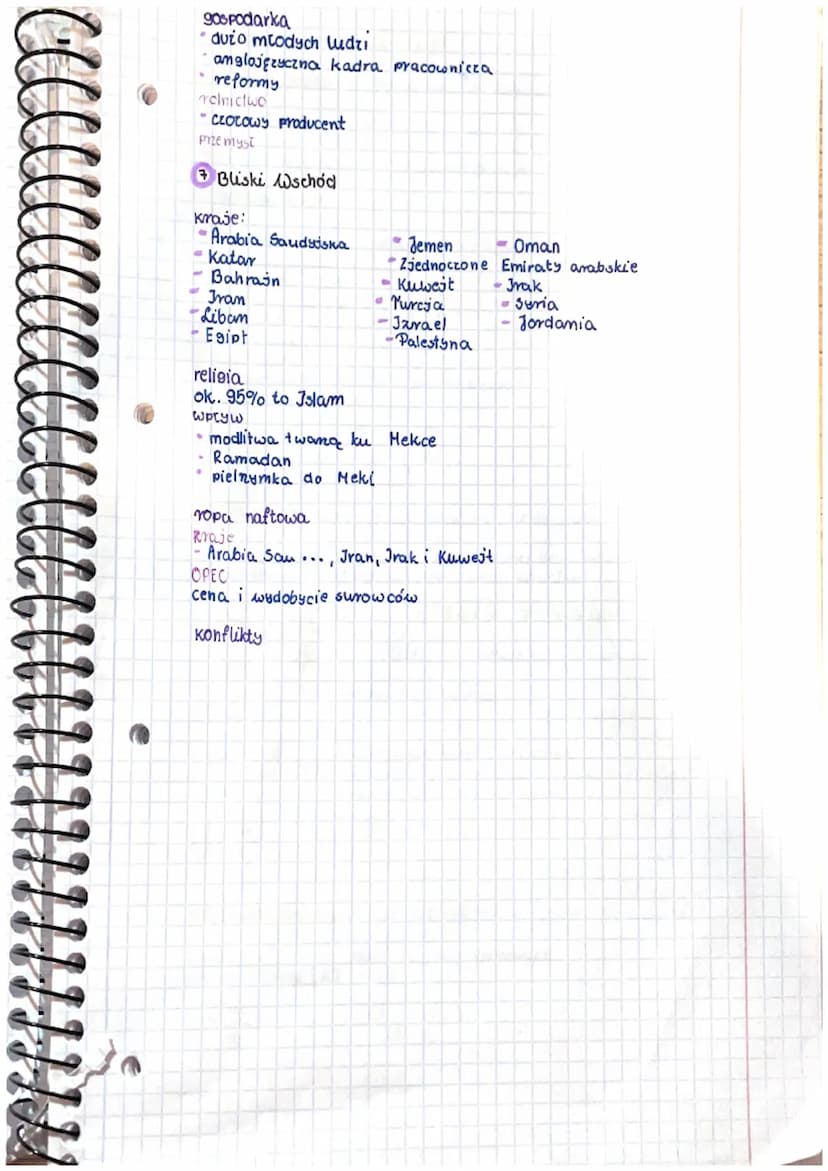 gospodarka
- dużo młodych ludzi
- anglojęzyczna kadra pracownicza
- reformy
rolnictwo
- czołowy producent
przemysł
7 Bliski Wschód
kraje:
- Arabia Saudyjska
- Katar
- Bahrajn
- Iran
- Liban
- Egipt
- Jemen
- Zjednoczone Emiraty arabskie
- Kuwejt
- Turcja
- Izrael
- Palestyna
- Oman
- Irak
- Syria
- Jordania
religia
ok. 95% to Islam
wpływ
- modlitwa twarzą ku Mekce
- Ramadan
- pielrzymka do Meki
ropa naftowa
kraje
- Arabia Sau ..., Iran, Irak i Kuwejt
OPEC
cena i wydobycie surowców
konflikty